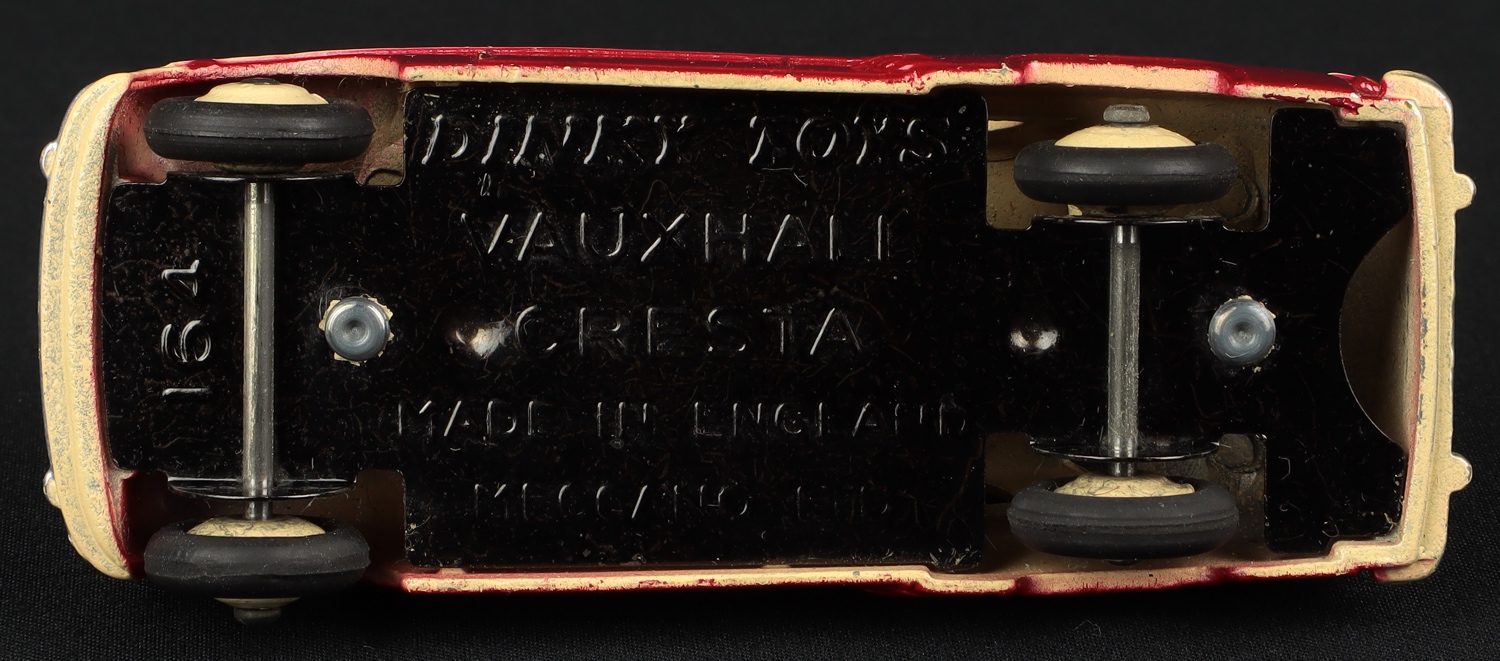 DINKY TOYS
VAUXHALL
CRESTA
MADE IN ENGLAND
MECCANO LTD
164